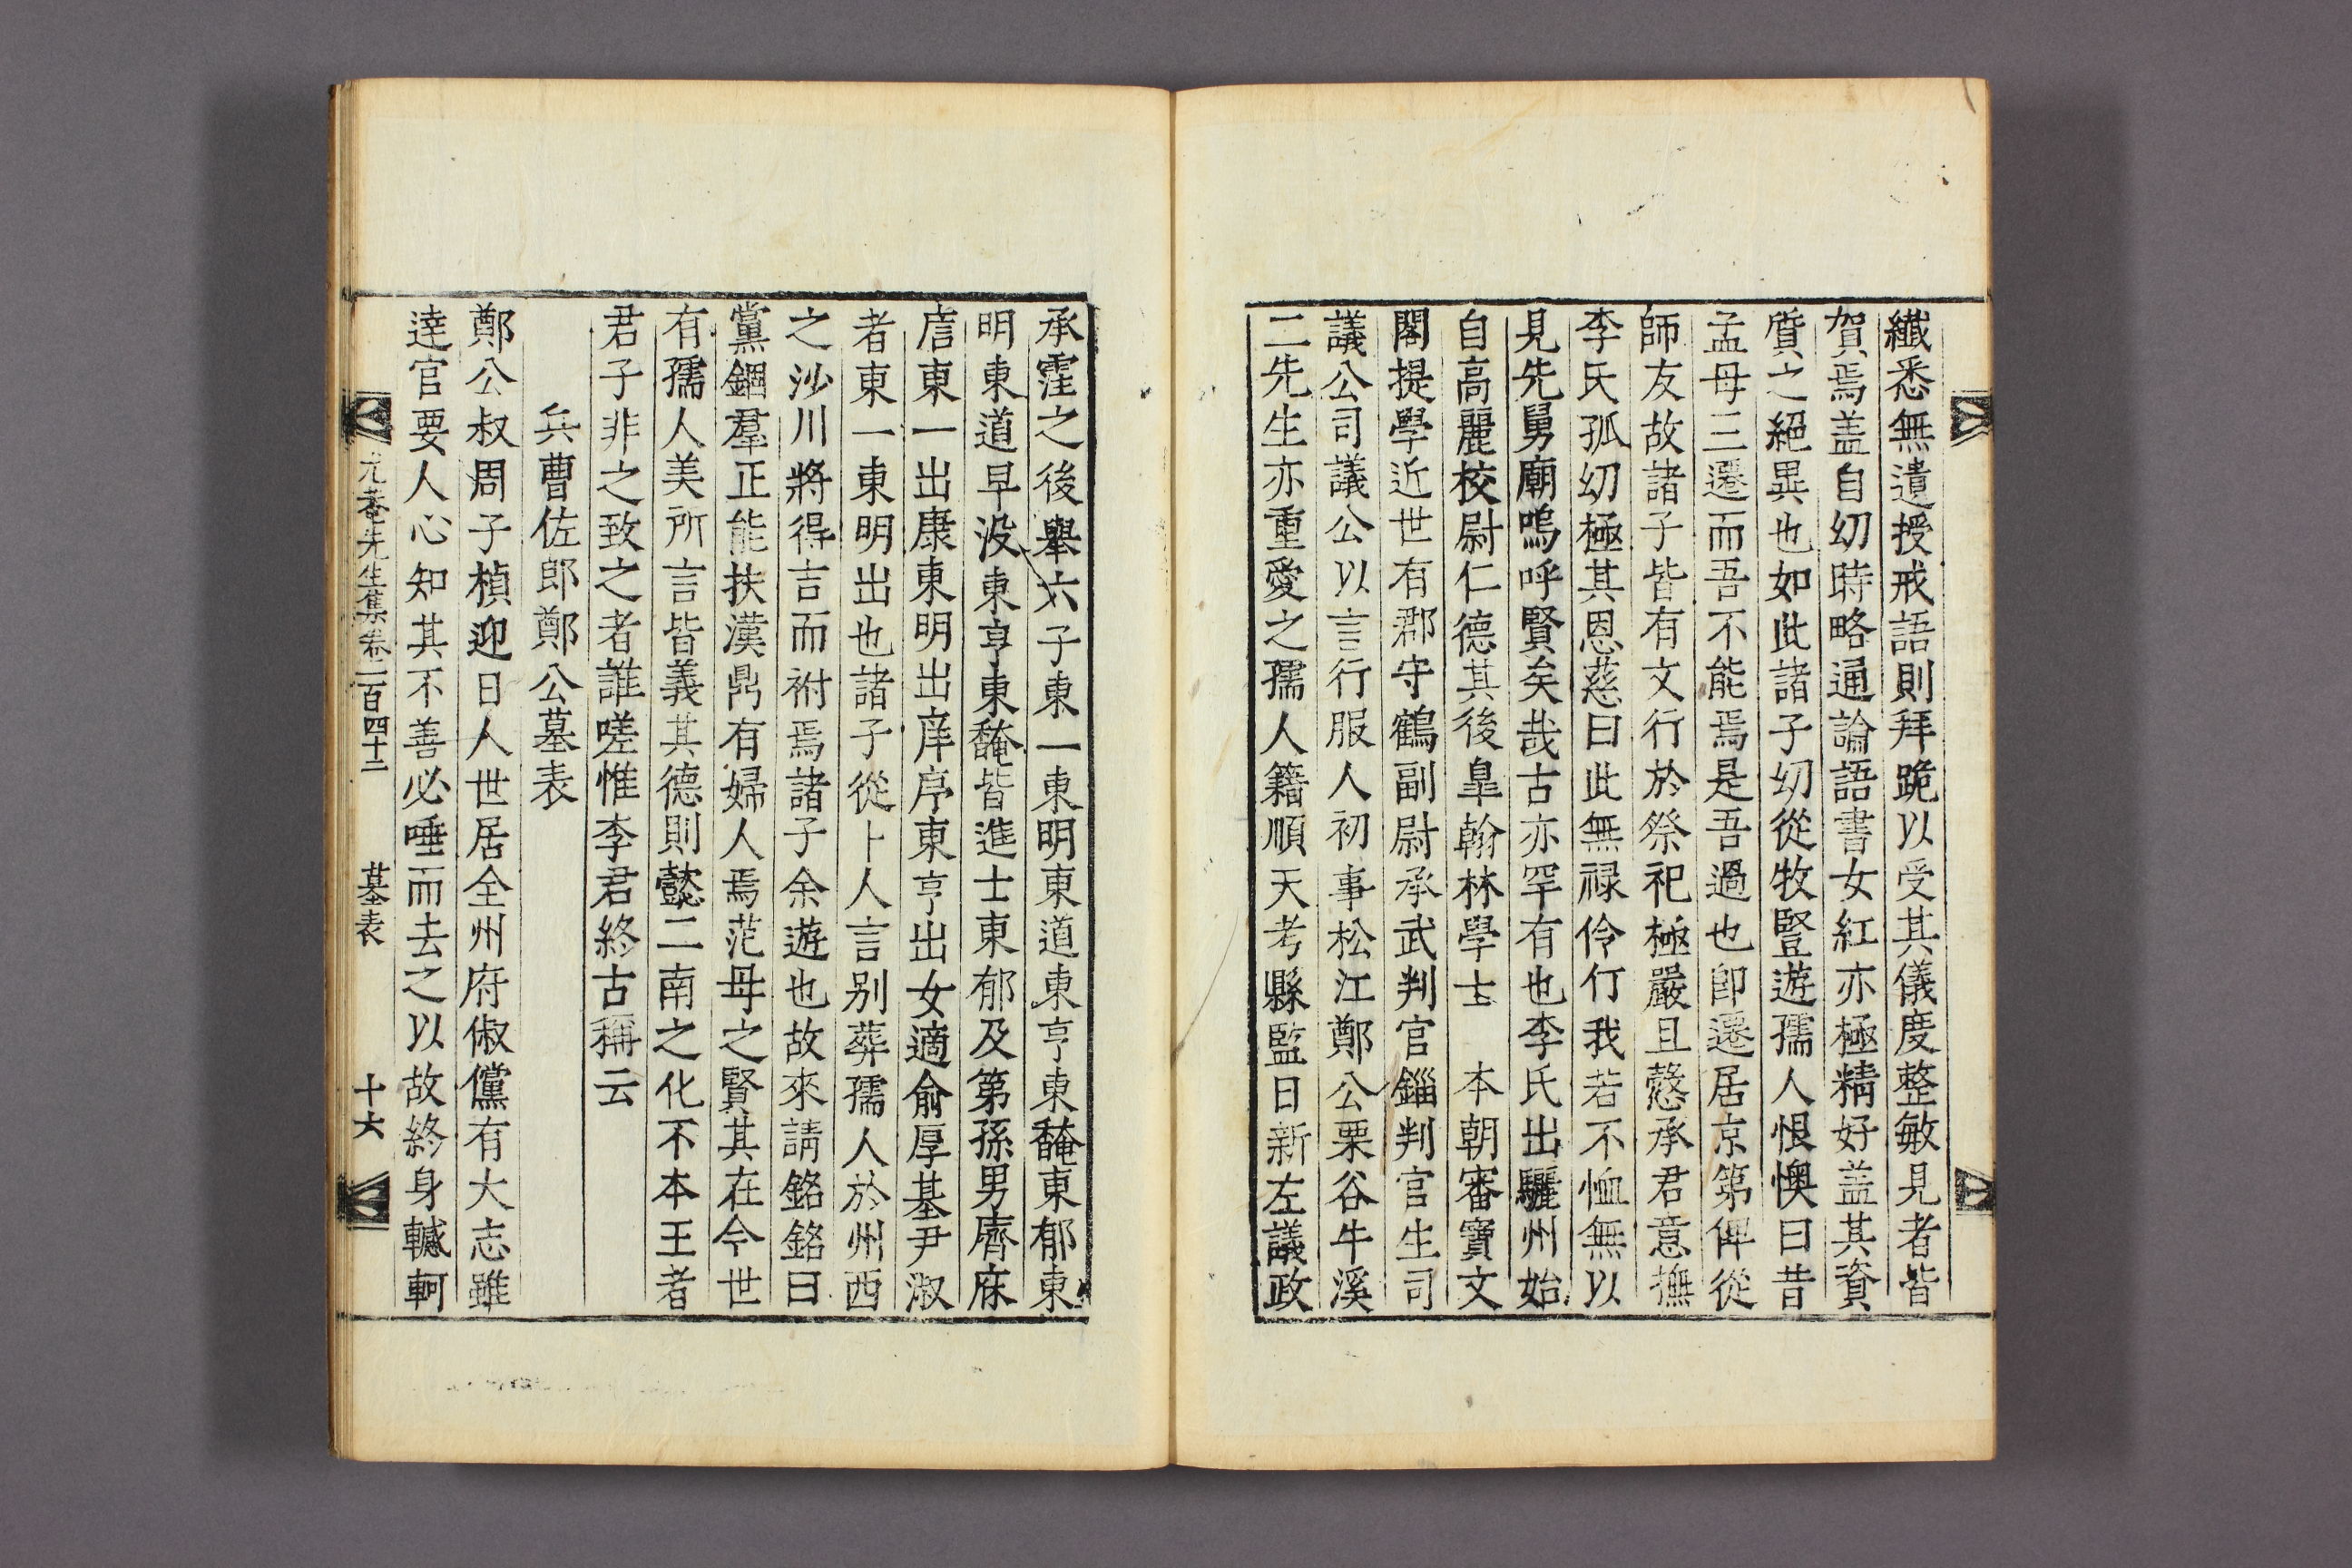 纖悉無遺授戒語則拜跪以受其儀度整敏見者皆
賀焉盖自幼時略通論語書女紅亦極精好盖其資
質之絕異也如此諸子幼從牧豎遊孺人恨懊曰昔
孟母三遷而吾不能焉是吾過也卽遷居京第俾從
師友故諸子皆有文行於祭祀極嚴且慤承君意撫
李氏孤幼極其恩慈曰此無祿伶仃我若不恤無以
見先舅廟嗚呼賢矣哉古亦罕有也李氏出驪州始
自高麗校尉仁德其後臯翰林學士　本朝審寶文
閣提學近世有郡守鶴副尉承武判官錙判官生司
議公司議公以言行服人初事松江鄭公栗谷牛溪
二先生亦重愛之孺人籍順天考縣監日新左議政
承霔之後擧六子東一東明東道東亨東馣東郁東
明東道早沒東亨東馣皆進士東郁及第孫男䧹庥
㢛東一出康東明出庠序東亨出女適俞厚基尹淑
者東一東明出也諸子從卜人言别葬孺人於州西
之沙川將得吉而祔焉諸子余遊也故來請銘銘曰
黨錮羣正能扶漢鼎有婦人焉范母之賢其在今世
有孺人美所言皆義其德則懿二南之化不本王者
君子非之致之者誰嗟惟李君終古稱云
兵曹佐郎鄭公墓表
鄭公叔周子楨迎日人世居全州府俶儻有大志雖
達官要人心知其不善必唾而去之以故終身轗軻
尤菴先生集卷一百四十二　墓表　十六